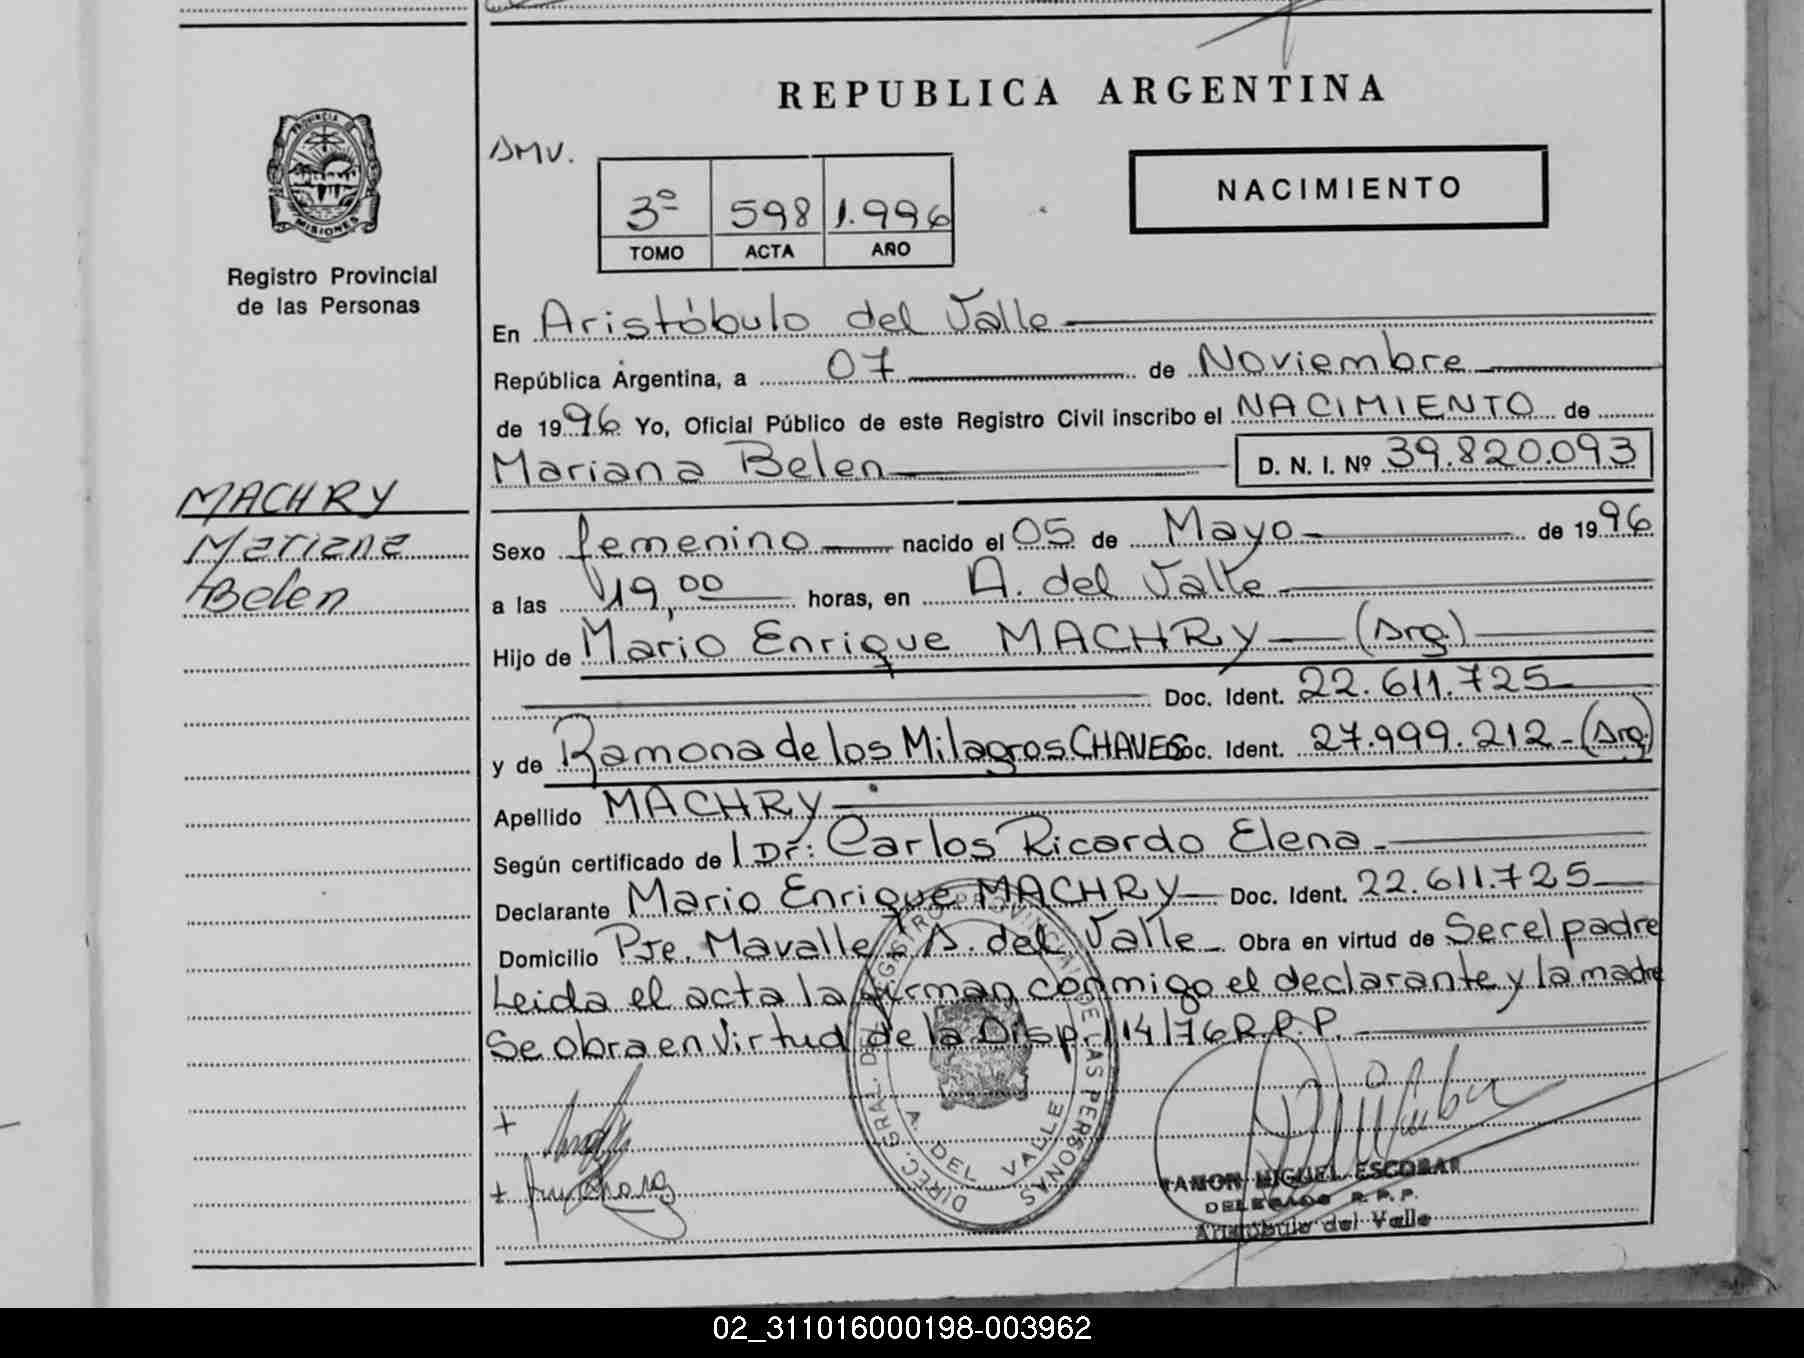 REPUBLICA ARGENTINA
PROVINCIA DE
MISIONES
Registro Provincial
de las Personas
3º 598 1.996
TOMO ACTA AÑO
NACIMIENTO
En Aristóbulo del Valle
República Argentina, a 07 de Noviembre
de 1996 Yo, Oficial Público de este Registro Civil inscribo el NACIMIENTO de
Mariana Belen D. N. I. Nº 39.820.093
MACHRY
Mariana
Belen
Sexo femenino nacido el 05 de Mayo de 1996
a las 19,00 horas, en A. del Valle
Hijo de Mario Enrique MACHRY (Arg.)
Doc. Ident. 22.611.725
y de Ramona de los Milagros CHAVES Doc. Ident. 27.999.212 - (Arg.)
Apellido MACHRY
Según certificado de Dr: Carlos Ricardo Elena
Declarante Mario Enrique MACHRY Doc. Ident. 22.611.725
Domicilio Pje. Mavalle A. del Valle Obra en virtud de Ser el padre
Leida el acta la firman conmigo el declarante y la madre
Se obra en Virtud de la Disp. 114/76 R.P.P.
DIREC. GRAL. DEL REGISTRO PROVINCIAL DE LAS PERSONAS
A. DEL VALLE
RAMON MIGUEL ESCOBAR
DELEGADO R. P. P.
Aristóbulo del Valle
02_311016000198-003962